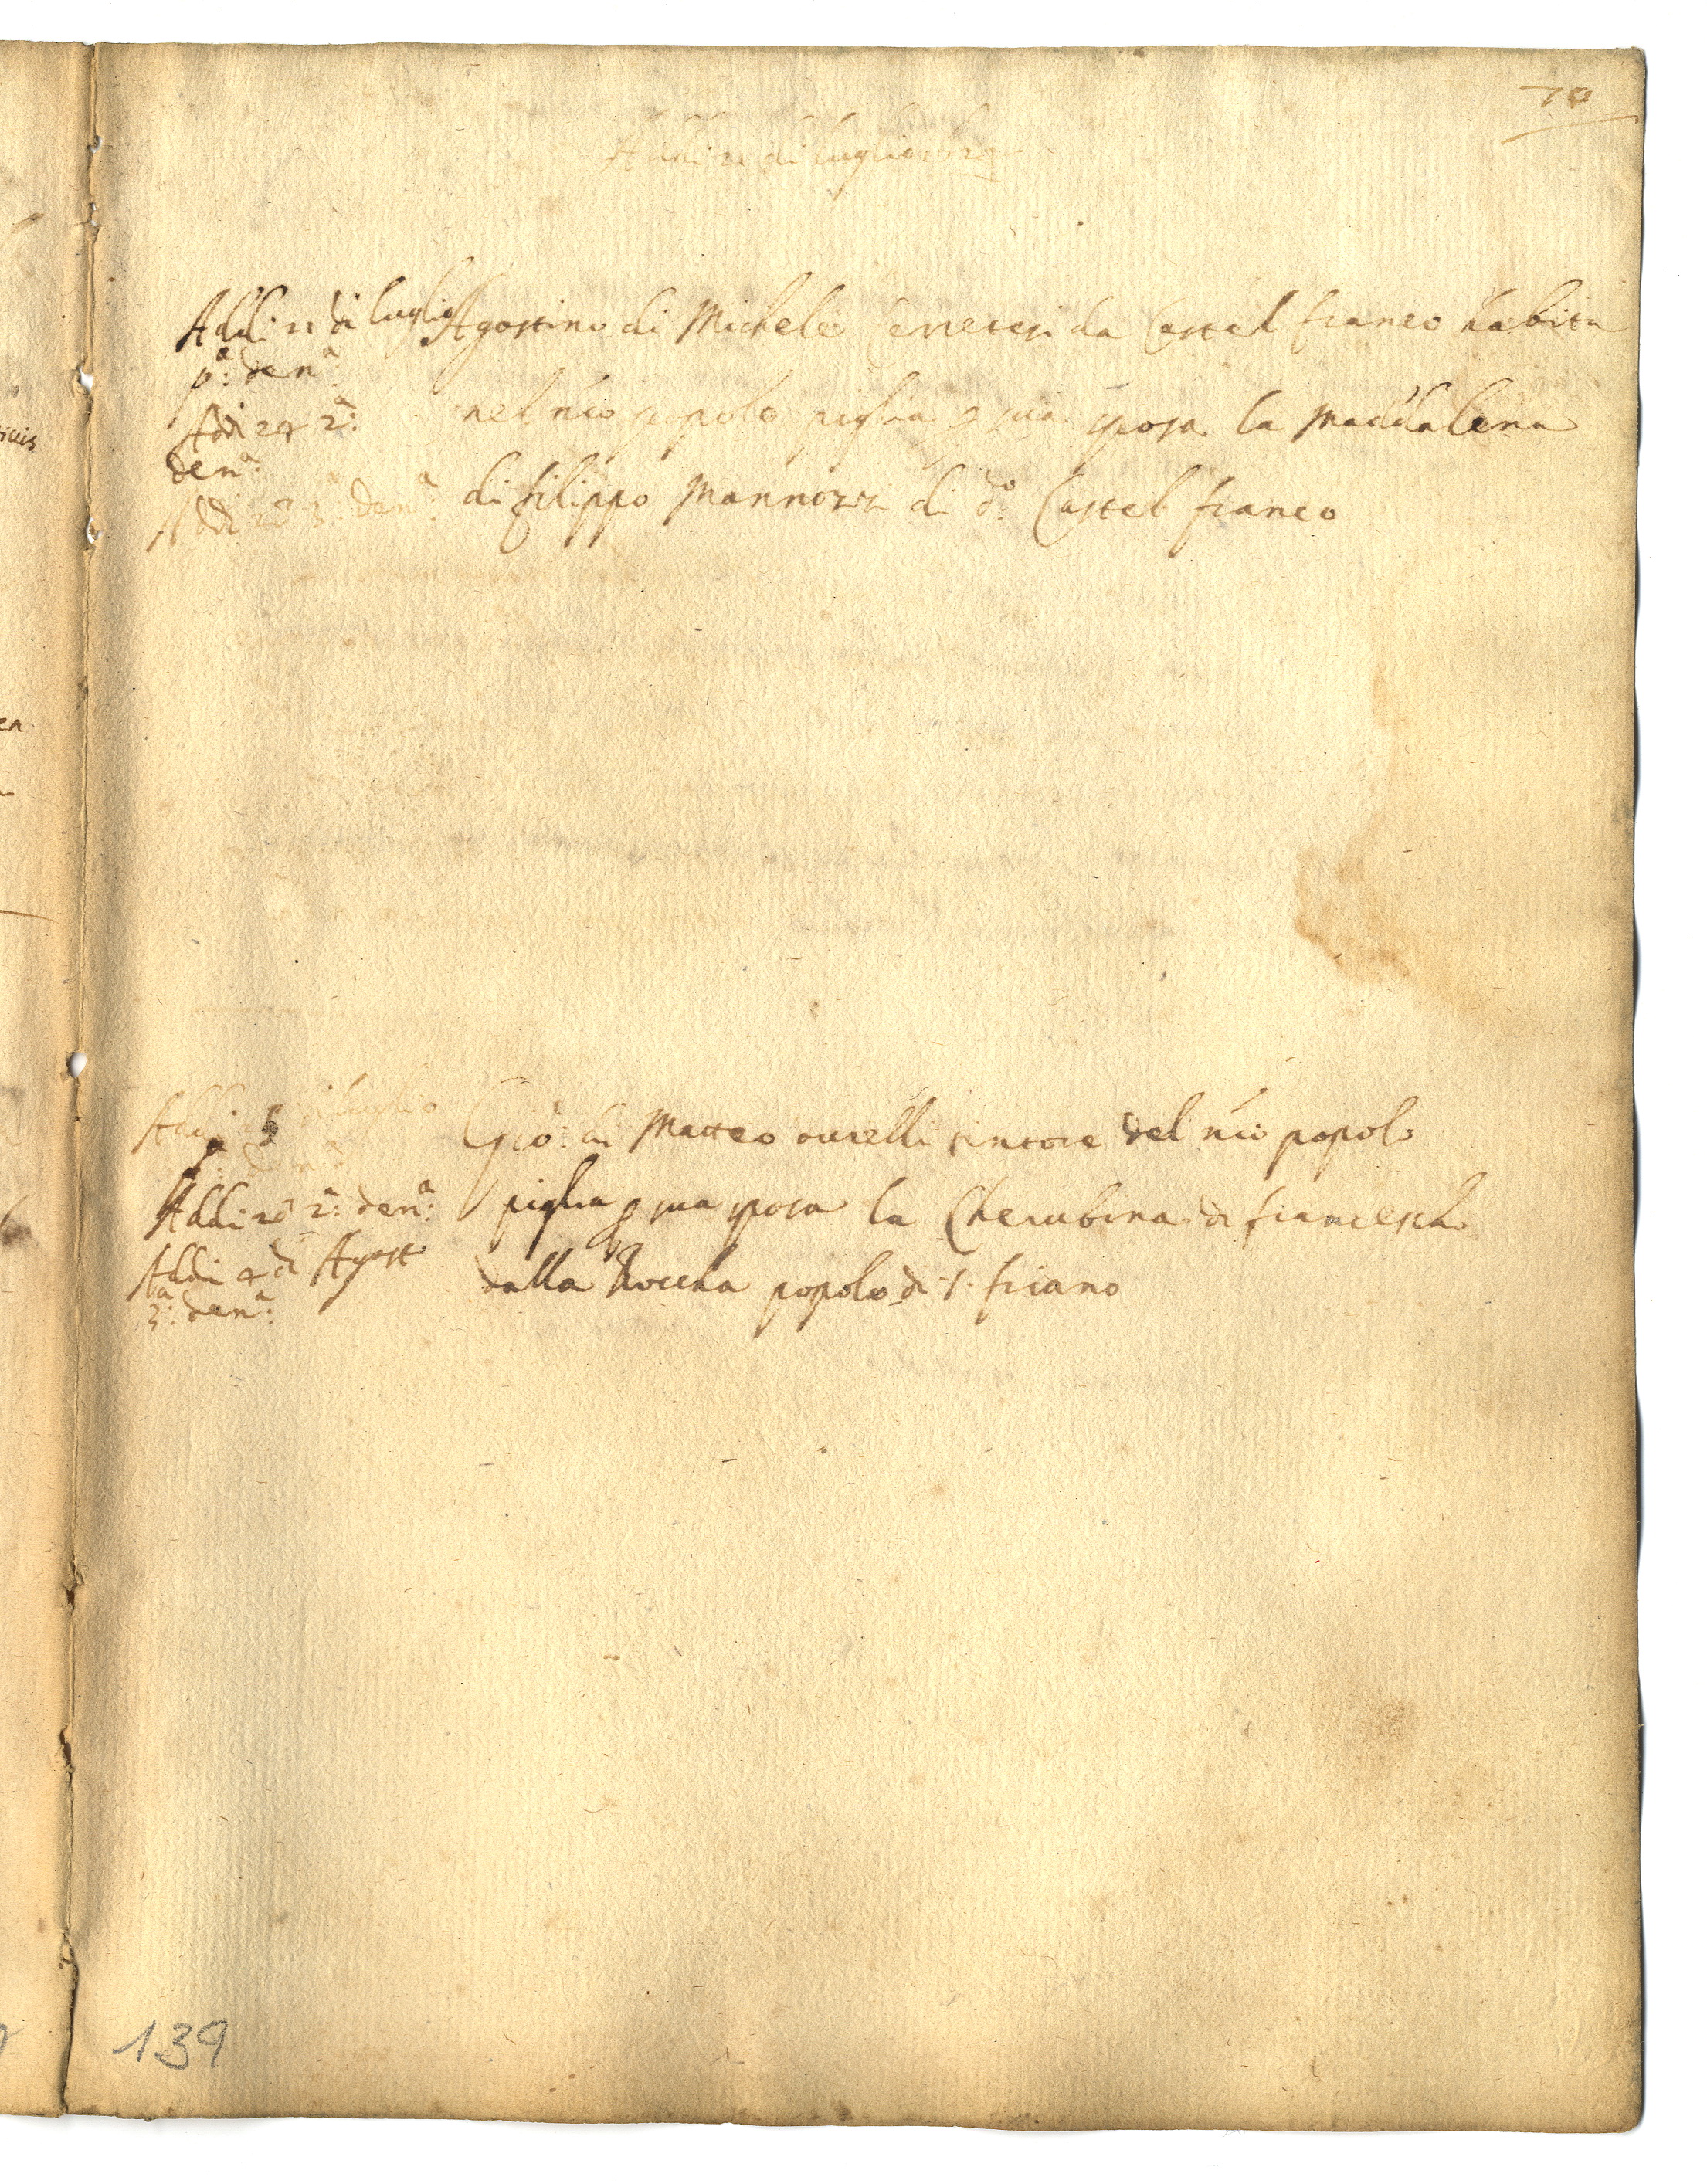 70
Addi 21 di luglio
Addi 21 di luglio
pª: denª
Adi 24 2ª:
denª:
Addi 3ª denª:
Agostino di Michele da Castel franco habita
nel nio popolo piglia p sua sposa la Maddalena
di filippo Mannozzi di dº Castel franco
Addi luglio
pª denª
Addi 2ª: denª:
Addi 4 di Agosto
3ª: denª:
Gio: di Matteo aurelli tintore del nio popolo
piglia p sua sposa la Cherubina di francescho
dalla Roccha popolo di S. friano
139